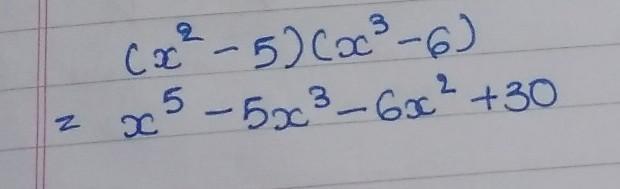 (x² - 5)(x³ - 6)
= x⁵ - 5x³ - 6x² + 30